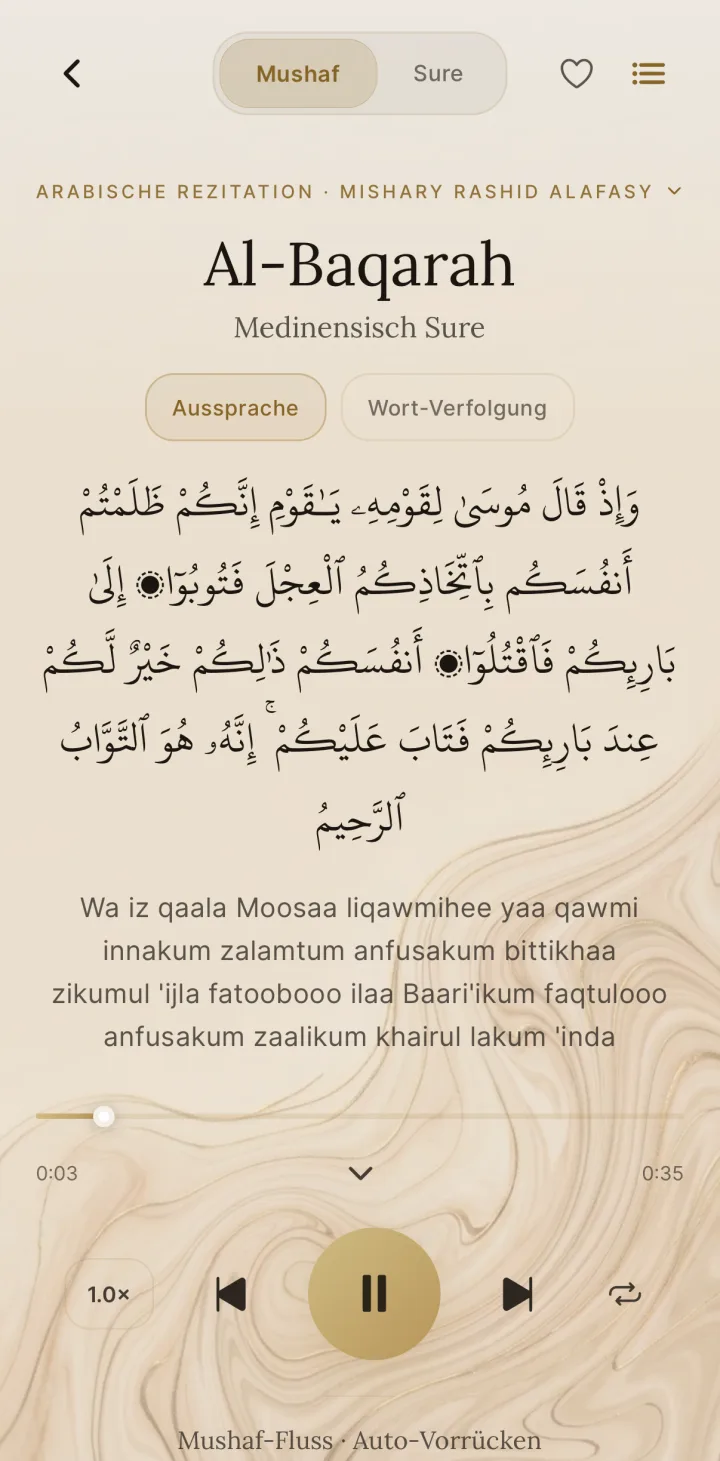 Mushaf
Sure
ARABISCHE REZITATION · MISHARY RASHID ALAFASY
Al-Baqarah
Medinensisch Sure
Aussprache
Wort-Verfolgung
وَإِذْ قَالَ مُوسَىٰ لِقَوْمِهِۦ يَـٰقَوْمِ إِنَّكُمْ ظَلَمْتُمْ
أَنفُسَكُم بِٱتِّخَاذِكُمُ ٱلْعِجْلَ فَتُوبُوٓا۟ إِلَىٰ
بَارِئِكُمْ فَٱقْتُلُوٓا۟ أَنفُسَكُمْ ذَٰلِكُمْ خَيْرٌ لَّكُمْ
عِندَ بَارِئِكُمْ فَتَابَ عَلَيْكُمْ ۚ إِنَّهُۥ هُوَ ٱلتَّوَّابُ
ٱلرَّحِيمُ
Wa iz qaala Moosaa liqawmihee yaa qawmi
innakum zalamtum anfusakum bittikhaa
zikumul 'ijla fatoobooo ilaa Baari'ikum faqtulooo
anfusakum zaalikum khairul lakum 'inda
0:03
0:35
1.0×
Mushaf-Fluss · Auto-Vorrücken